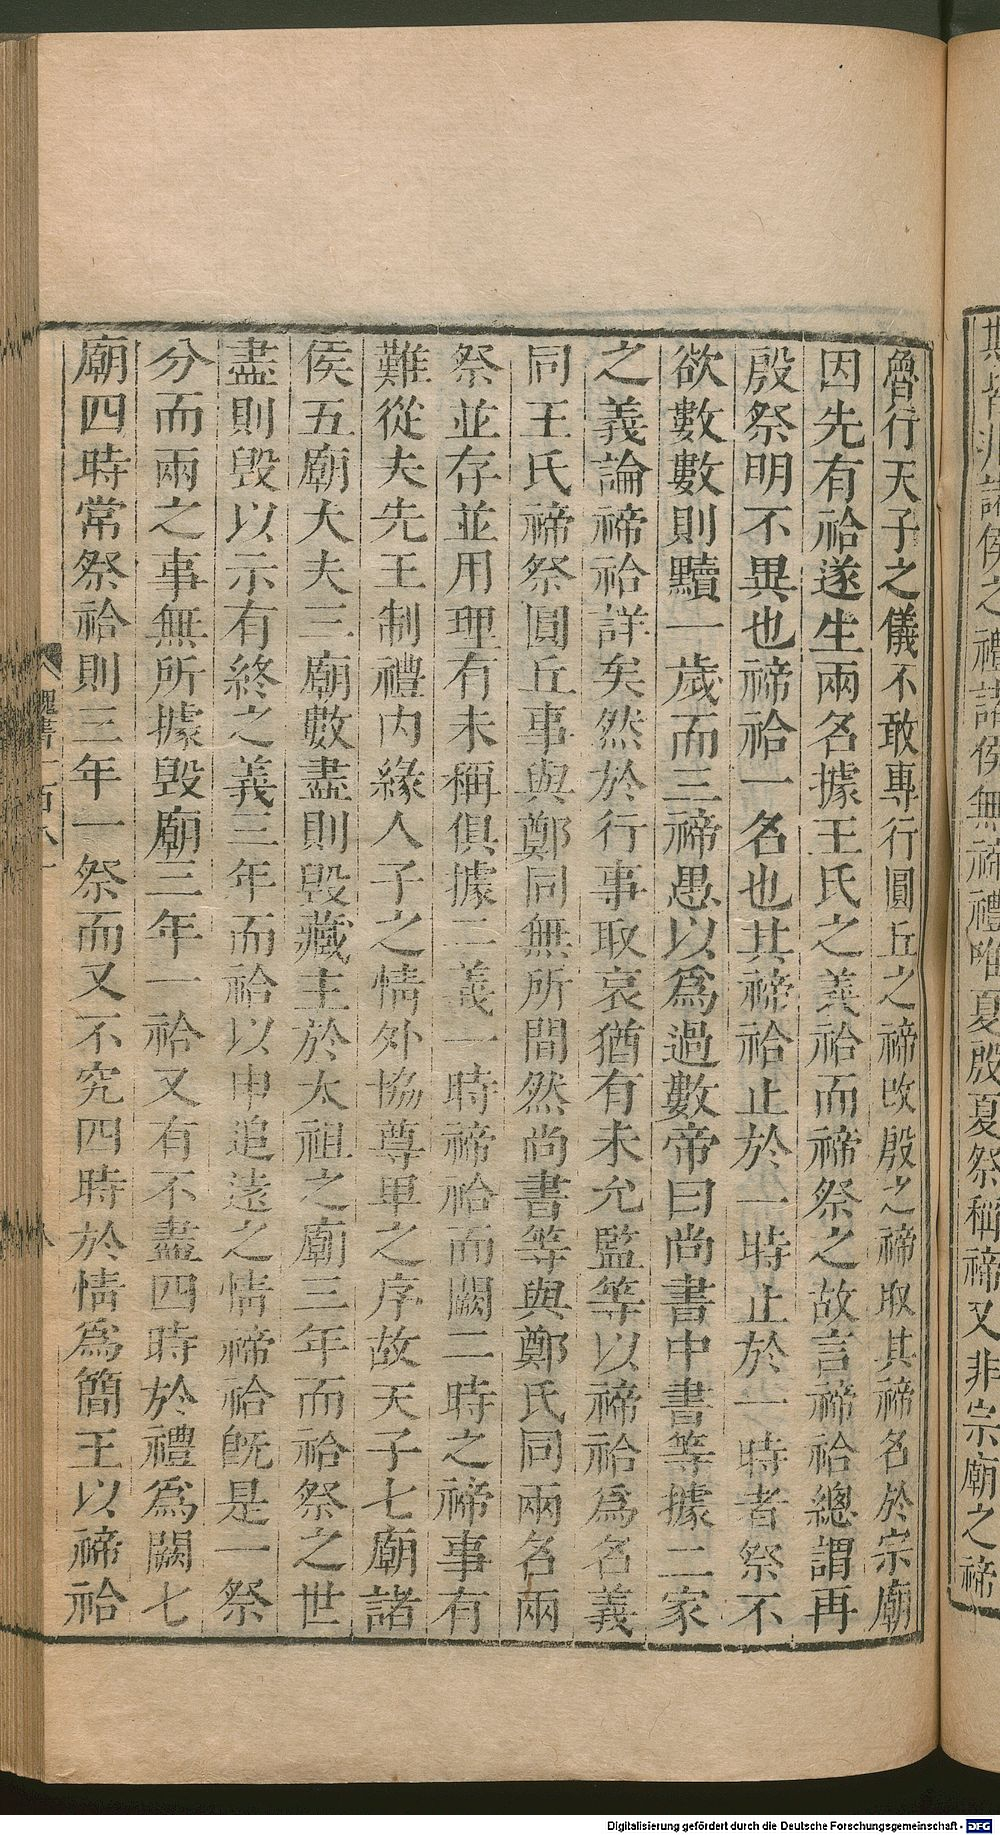 斯皆非諸侯之禮諸侯無禘禮唯夏殷夏祭稱禘又非宗廟之禘
魯行天子之儀不敢專行圓丘之禘改殷之禘取其禘名於宗廟
因先有祫遂生兩名據王氏之義祫而禘祭之故言禘祫總謂再
殷祭明不異也禘祫一名也其禘祫止於一時止於一時者祭不
欲數數則黷一歲而三禘愚以爲過數帝曰尚書中書等據二家
之義論禘祫詳矣然於行事取衷猶有未允監等以禘祫爲名義
同王氏禘祭圓丘事與鄭同無所間然尚書等與鄭氏同兩名兩
祭並存並用理有未稱俱據二義一時禘祫而闕二時之禘事有
難從夫先王制禮内緣人子之情外協尊卑之序故天子七廟諸
侯五廟大夫三廟數盡則毀藏主於太祖之廟三年而祫祭之世
盡則毀以示有終之義三年而祫以申追遠之情禘祫既是一祭
分而兩之事無所據毀廟三年一祫又有不盡四時於禮爲闕七
廟四時常祭祫則三年一祭而又不究四時於情爲簡王以禘祫
魏書一百八一
八
Digitalisierung gefördert durch die Deutsche Forschungsgemeinschaft - DFG